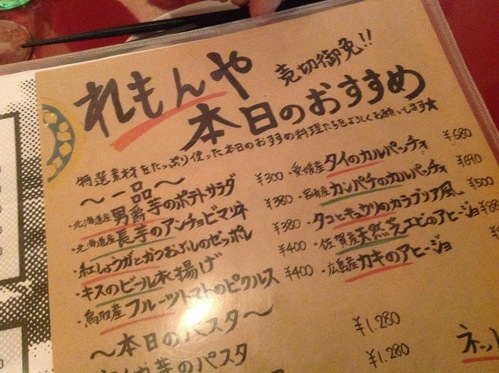 れもんや
売切御免!!
本日のおすすめ
特選素材をたっぷり使った本日のおすすめ料理たちをよろしくお願いします★
〜一品〜
・北海道産 男爵芋のポテトサラダ ¥300
・北海道産 長芋のアンチョビマリネ ¥380
・紅しょうがとかつおぶしのゼッポレ ¥380
・キスのビール衣揚げ ¥400
・鳥取産 フルーツトマトのピクルス ¥400
・愛媛産 タイのカルパッチョ ¥680
・長崎産 カンパチのカルパッチョ ¥690
・タコとキュウリのカラブリア風 ¥500
・佐賀産 天然芝エビのアヒージョ ¥880
・広島産 カキのアヒージョ
〜本日のパスタ〜
¥1.280
のパスタ ¥1.280